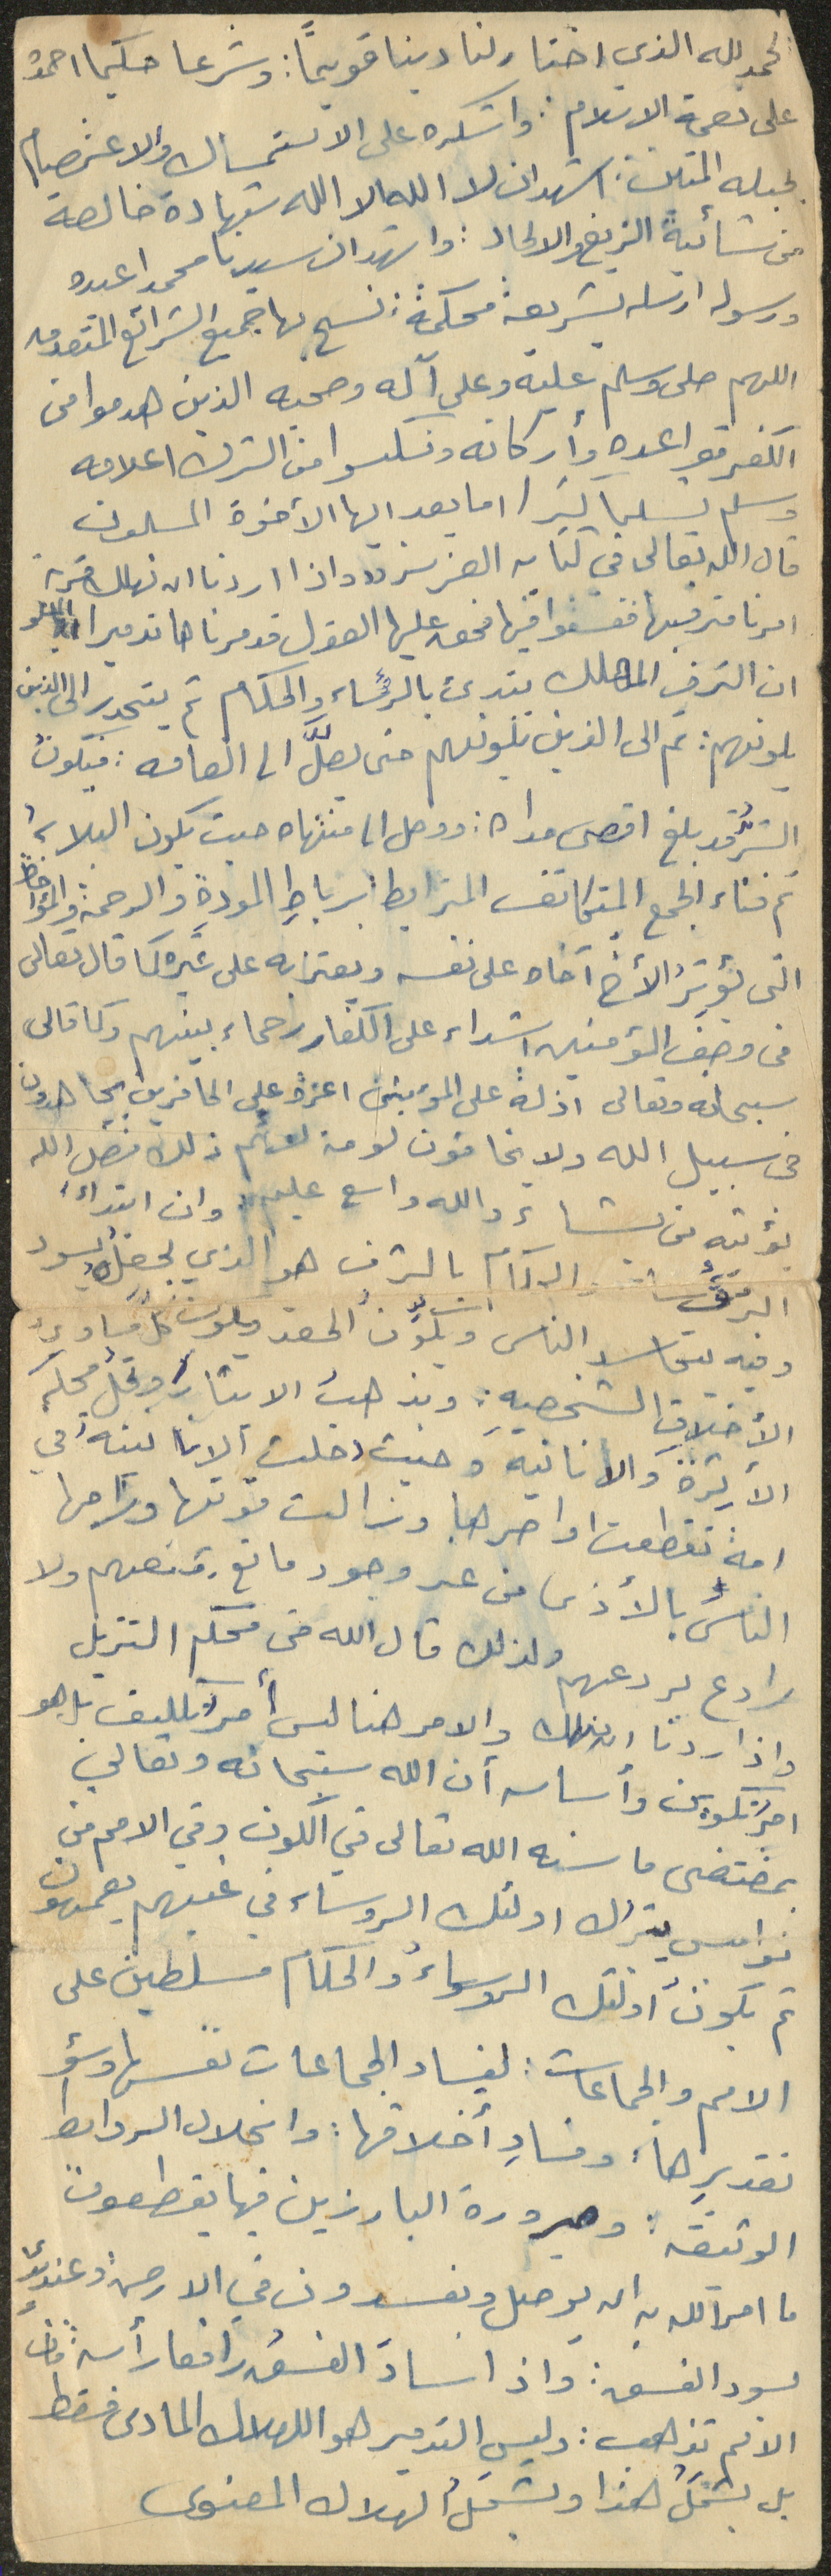 الحمد لله الذي اختار لنا دينا قويمًا: وشرعا حكيما احمدُه
على نعمة الاسلام: واشكره على الاستمساك والاعتصام
بحبله المتين: اشهد ان لا اله الا الله شهادة خالصة
من شائبة الزيغ والالحاد: واشهد ان سيدنا محمدا عبده
ورسوله ارسله بشريعة محكمة: نسخ بها جميع الشرائع المتقدمه
اللهم صلى وسلم عليه وعلى آله وصحبه الذين هدموا من
الكفر قواعده وأركانه ونكسوا من الشرك اعلامه
وسلم تسليما كثيرا اما بعد ايها الأخوة المسلمون
قال الله تعالى في كتابه العزيز واذا اردنا ان نهلك قرية
امرنا مترفيها ففسقوا فيها فحق عليها القول فدمرناها تدميرا
ان الترف المهلك يبتدئ بالرؤساء والحكام ثم ينحدر الى الذين
يلونهم: ثم الى الذين يلونهم حتى يصلَ الى العامه: فيكونُ
الشرُ قد بلغ اقصى مداه: ووصل الى منتهاه حيث يكون البلاءُ
ثم فناء الجمع المتكاتف المترابط برباطِ المودةِ والرحمةِ والمؤاخاة
التي يؤثرُ الأخُ آخاه على نفسه ويعتز به على غيره كما قال تعالى
في وصف المؤمنين اشداء على الكفار رحماء بينهم وكما قال
سبحانه وتعالى اذلة على المؤمنين اعزة على الكافرين يجاهدون
في سبيل الله ولا يخافون لومة لائم ذلك فضل الله
يؤتيه من يشاء والله واسع عليم وان ابتداءَ
الرؤساء والحكام بالترف هو الذي يجعلُه يسود
وفيه يتحاسد الناس ويكوّن الحقد ويلوث كل مساوئ
الأخلاق الشخصيه: ويذهبُ الايثارُ وتحلُ محله
الأثرة والانانية وحيث دخلت الانانيةُ في
امةٍ تقطعت اواصرها وزالت قوتها وتراحمها
الناسُ بالأذى من غير وجود مانع يمنعهم ولا
رادع يردعهم ولذلك قال الله في محكم التنزيل
واذا اردنا ان نهلك والامر هنا ليس أمرَ تكليف بل هو
امرُ تكوين وأساسه أن الله سبحانه وتعالى
بمقتضى ما سنه الله تعالى في الكون وفي الامم من
نواميس يترك اولئك الروساء في غيهم يعمهون
ثم يكونُ اولئك الروساءُ والحكام مسلطين على
الامم والجماعات: لفساد الجماعات نفسها وسؤ
تقديرها، وفسادِ أخلاقها: وانحلال الروابط
الوثيقه: وصيرورة البارزين فيها يقطعون
ما امر الله به ان يوصل ويفسدون في الارض: وعندئذٍ
يسود الفسق: واذا ساد الفسق رافعا رأسه: فان
الامم تذهب: وليس التدمير هو الهلاك المادى فقط
بل يشملُ هذا ويشملُ الهلاك المعنوى